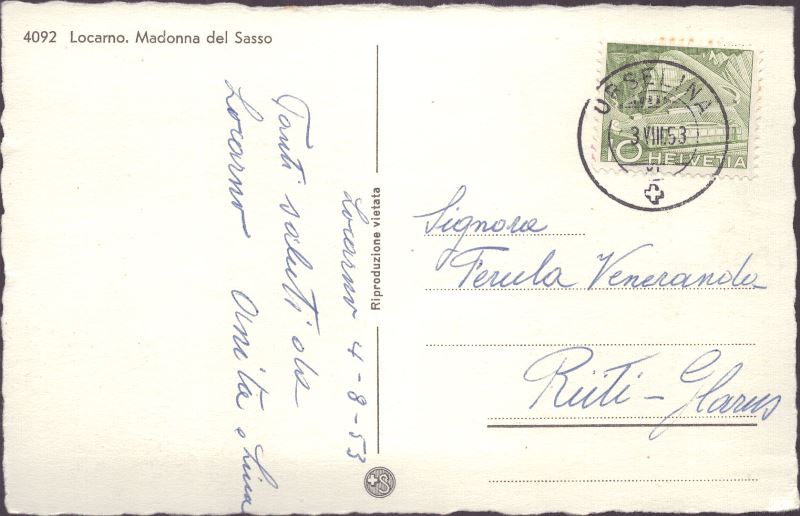 4092 Locarno. Madonna del Sasso
Locarno 4-8-53
Tanti saluti da
Locarno Anita e Lina
Riproduzione vietata
ORSELINA
3.VIII.53
10 HELVETIA
Signora
Ferula Veneranda
Rüti-Glarus
S